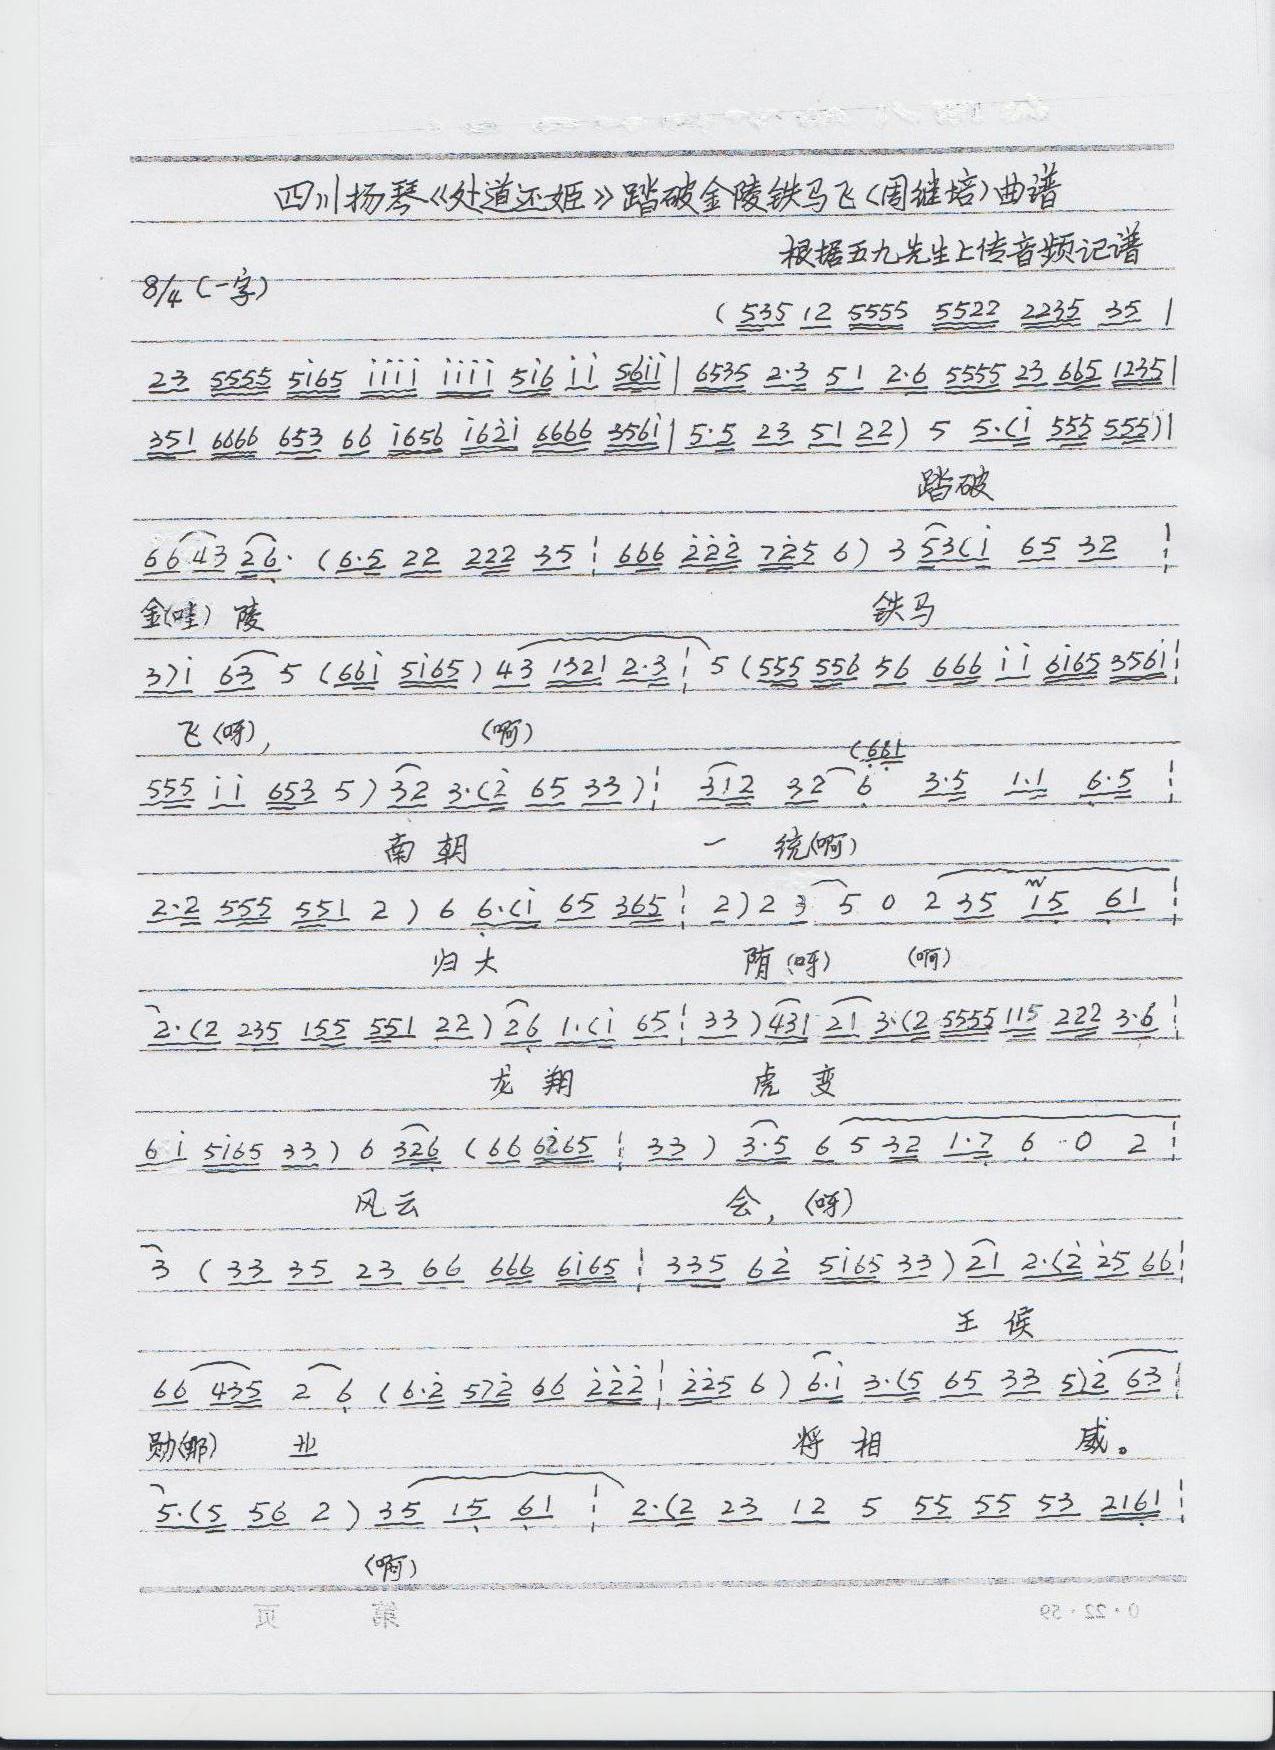 四川扬琴《处道还姬》踏破金陵铁马飞(周继培)曲谱
根据五九先生上传音频记谱
8/4 (一字)
( 535 12 5555 5522 2235 35 |
23 5555 5i65 iiii iiii 5i6 ii 56ii | 6535 2·3 51 2·6 5555 23 665 1235 |
351 6666 653 66 i656 i62i 6666 356i | 5·5 23 51 22 ) 5 5·(i 555 555) |
踏破
66 43 26· ( 6·5 22 222 35 ¦ 666 2̇2̇2̇ 72̇5 6 ) 3 53(i 65 32 ¦
金(哇) 陵 铁马
3)i 63 5 ( 66i 5i65 ) 43 1321 2·3 ¦ 5 ( 555 556 56 666 ii 6i65 356i ¦
飞(呀), (啊)
(661
555 ii 653 5 ) 32 3·(2̇ 65 33 ) ¦ 312 32 6̣ 3·5 1·1 6̣·5 ¦
南 朝 一 统(啊)
2·2 555 551 2 ) 6 6̣·(i 65 365 ¦ 2 ) 2 3 5 0 2 35 15̣ 6̣1 ¦
归 大 隋(呀) (啊)
2·(2 235 155 551 22 ) 26̣ 1·(i 65 ¦ 33 ) 431 21 3·(2 5555 115 222 3·6 ¦
龙 翔 虎 变
6 i 5i65 33 ) 6 326̣ ( 66 62̇65 ¦ 33 ) 3·5 6 5 32 1·7̣ 6̣ 0 2 ¦
风云 会, (呀)
3 ( 33 35 23 66 666 6i65 ¦ 335 62̇ 5i65 33 ) 21 2·(2̇ 2̇5 66 ¦
王 侯
66 435 2 6̣ ( 6·2̇ 572̇ 66 2̇2̇2̇ ¦ 2̇2̇5 6 ) 6·i 3·(5 65 33 5)2̇ 63 ¦
勋(那) 业 将 相 威。
5·(5 56 2 ) 35 15̣ 6̣1 ¦ 2·(2 23 12 5 55 55 53 216̣1 ¦
(啊)
第 页
0·22·59